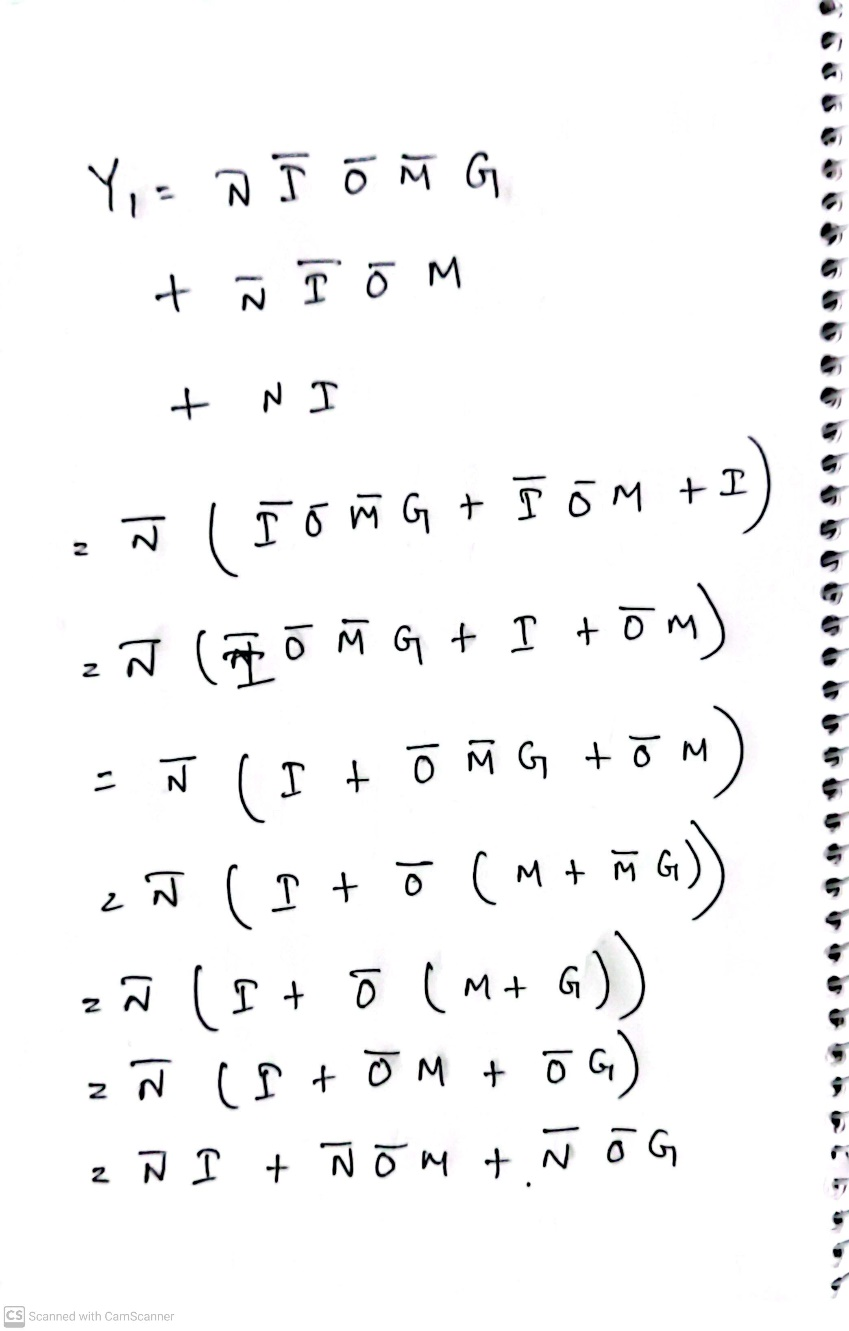 Y₁ = N̅ I̅ O̅ M̅ G
+ N̅ I̅ O̅ M
+ N I
= N̅ ( I̅ O̅ M̅ G + I̅ O̅ M + I )
= N̅ ( I̅ O̅ M̅ G + I + O̅ M )
= N̅ ( I + O̅ M̅ G + O̅ M )
= N̅ ( I + O̅ ( M + M̅ G ))
= N̅ ( I + O̅ ( M + G ))
= N̅ ( I + O̅ M + O̅ G )
= N̅ I + N̅ O̅ M + N̅ O̅ G
CS Scanned with CamScanner